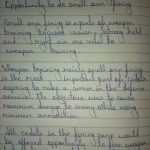 Opportunity to do small arm firing
Small arm firing is a part of weapon
training. Focused vision, strong hold
and right aim are used to
weapon training
Weapon training mainly small arm firing
is the most important part of cadets
aspiring to make a career in the defence
services. The objective used to cause
maximum damage to enemy while using
minimum ammunition.
All cadets in the firing camp would
be offered opportunity to fire weapon